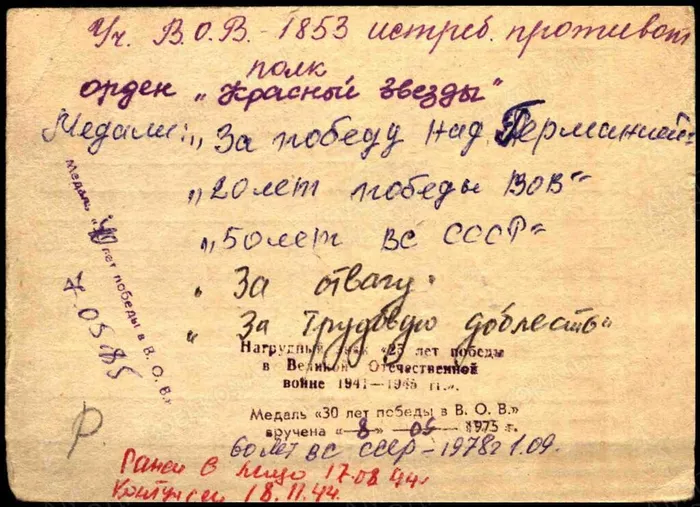 Уч. В.О.В. - 1853 истреб. противот
полк
орден „Красный звезды"
Медали: „За победу над Германией"
„20 лет победы ВОВ"
„50 лет ВС СССР"
„За отвагу"
„За трудовую доблесть"
Нагрудный знак «25 лет победы
в Великой Отечественной
войне 1941—1945 гг.».
Медаль «30 лет победы в В. О. В.»
вручена «8» 05 1975 г.
60 лет ВС СССР - 1978г 1.09.
Ранен в лицо 17.08.44г.
Контужен 18.11.44.
Медаль «40 лет победы в В. О. В.»
7.05.85
Р